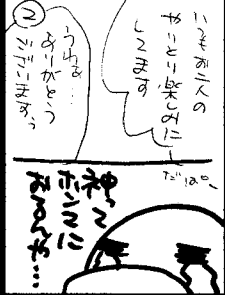 いつもお二人の
やりとり楽しみに
してます
②
うわぁ…
ありがとう
ございますぅ
ゆって
ホンマに